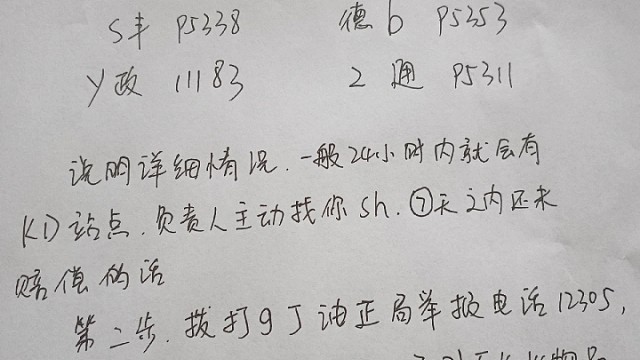 S丰 P5338 德b P5353
Y政 11183 2通 P5311
说明详细情况.一般24小时内就会有
KD站点.负责人主动找你sh.⑦天之内还未
赔偿的话
第二步.拨打9J油正局举报电话12305,